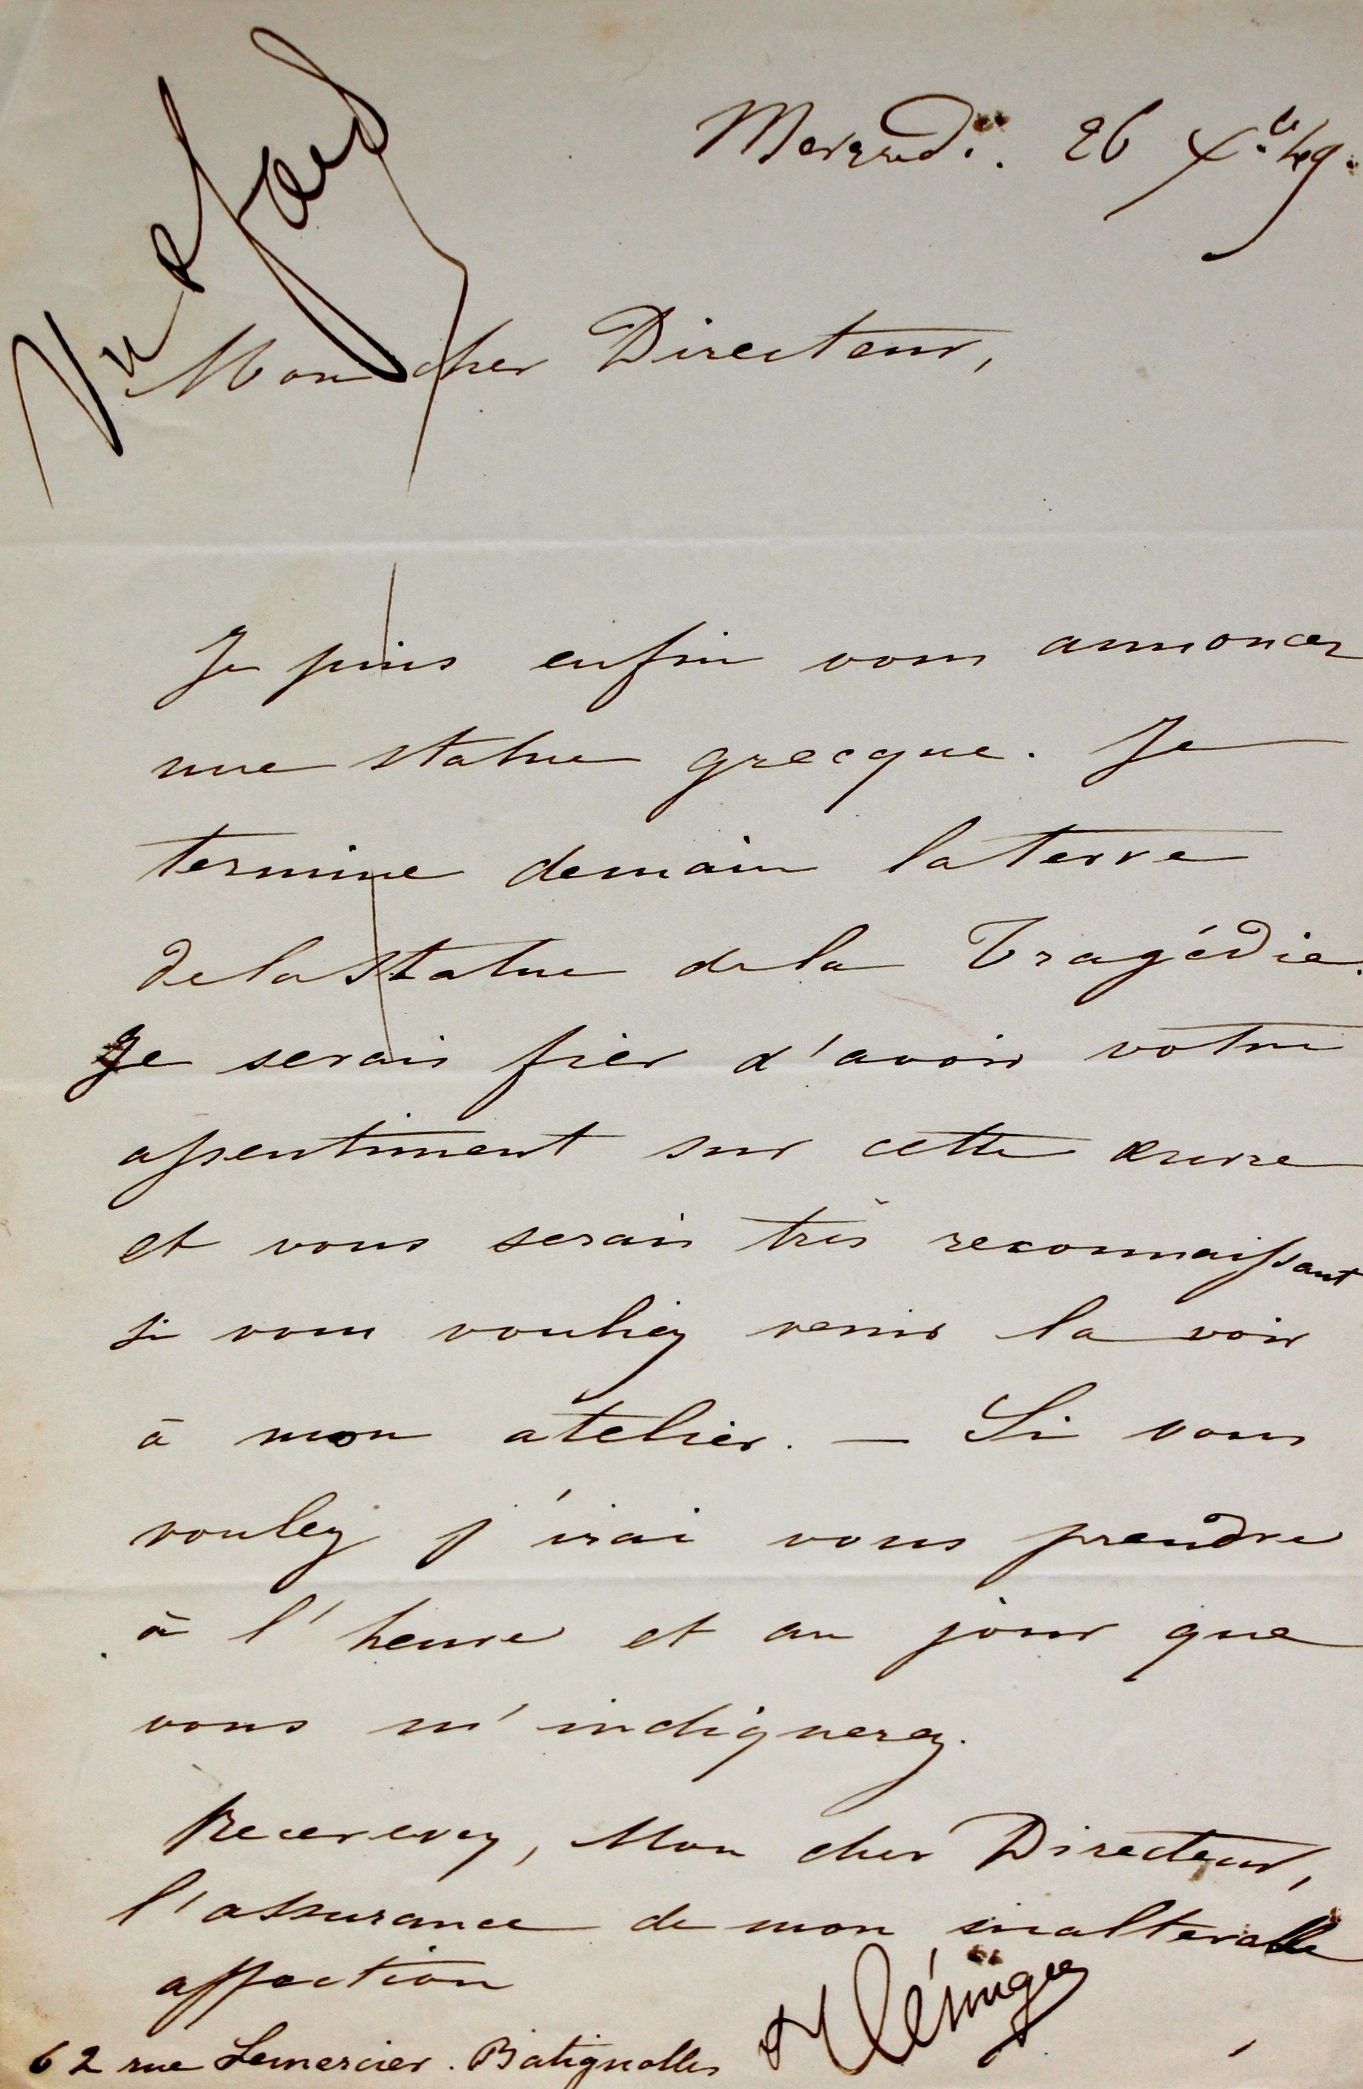 Mercredi. 26 Xbre 49.
Mon cher Directeur,
Je puis enfin vous annoncer
une statue grecque. Je
termine demain la terre
de la statue de la Tragédie.
Je serais fier d'avoir votre
assentiment sur cette œuvre
et vous serais très reconnaissant
si vous vouliez venir la voir
à mon atelier. — Si vous
voulez j'irai vous prendre
à l'heure et au jour que
vous m'indiquerez.
Recevez, Mon cher Directeur,
l'assurance de mon inalterable
affection
Clésinger
62 rue Lemercier. Batignolles